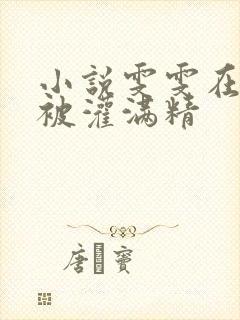 小説雯雯在
被灌满精
唐寶